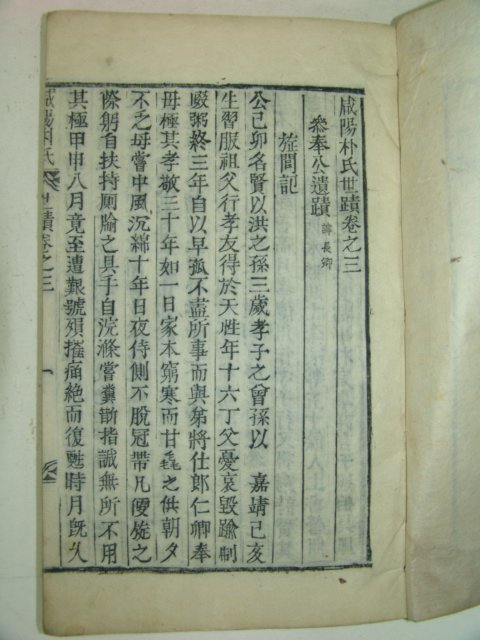 咸陽朴氏世蹟卷之三
叅奉公遺蹟 諱長卿
旌閭記
公己卯名賢以洪之孫三歲孝子之曾孫以 嘉靖己亥
生習服祖父行孝友得於天性年十六丁父憂哀毀踰制
啜粥終三年自以早孤不盡所事而與弟將仕郎仁卿奉
母極其孝敬三十年如一日家本窮寒而甘毳之供朝夕
不乏母嘗中風沉綿十年日夜侍側不脫冠帶凡便旋之
際躬自扶持厠牏之具手自浣滌嘗糞斷指誠無所不用
其極甲申八月竟至遭艱號殞擗痛絶而復甦時月旣久
咸陽朴氏世蹟卷之三 一